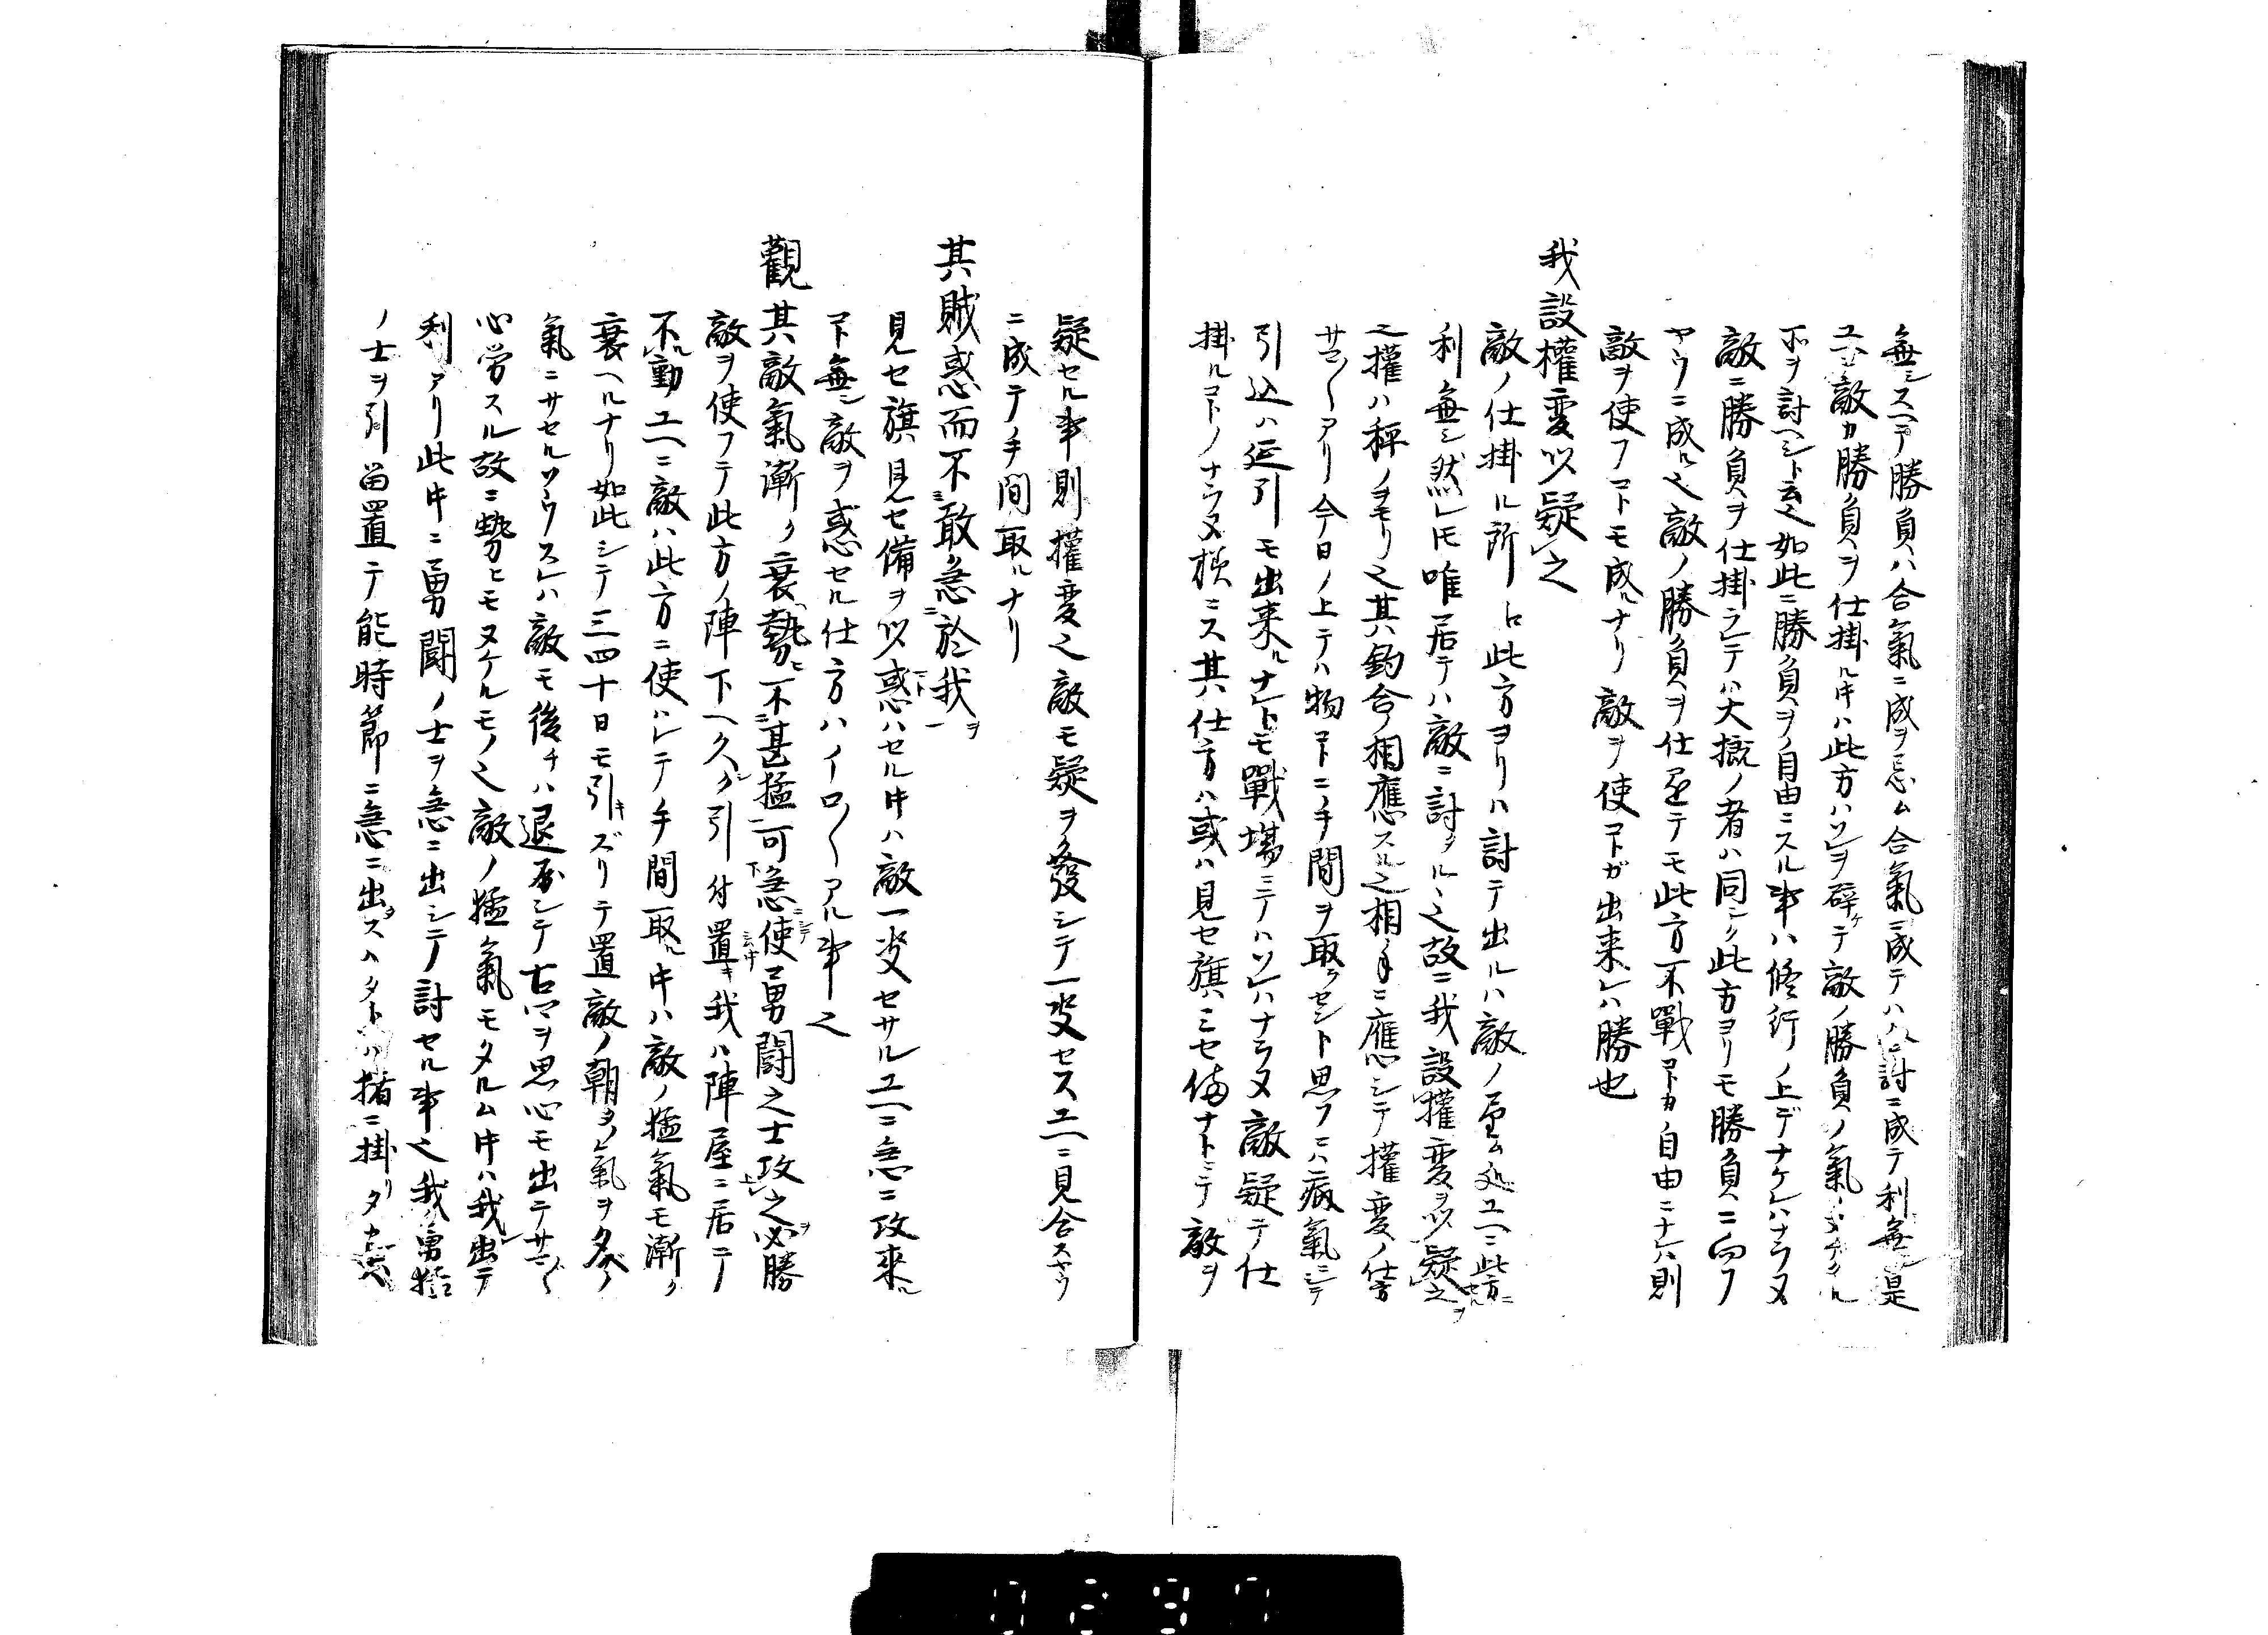 無シスヘテ勝負ハ合氣ニ成ヲ忌ム合氣ニ成テハ討ニ成テ利無シ是
ユヘニ敵カ勝負ヲ仕掛ル牛ハ此方ハソレヲ碎ケテ敵ノ勝負ノ氣ノ
所ヲ討ヘシト云之如此ニ勝負ヲノ自由ニスル事ハ修行ノ上デナケレハナラヌ
敵ニ勝負ヲ仕掛ラレテハ大概ノ者ハ同シク此方ヨリモ勝負ニ向フ
ヤウニ成ル之敵ノ勝負ヲ仕テモ此方不戰ヿカ自由ニナレハ則
敵ヲ使フヿモ成ルナリ敵ヲ使ヿガ出来レハ勝也
我設權変以疑之
敵ノ仕掛ル所ト此方ヨリハ討テ出ルハ敵ノ処ユヘニ此方ニ
利無シ然レ𪜈唯居テハ敵ニ討タルヽ之故ニ我設權変ヲ以疑之
之權ハ秤ノヲモリ之其釣合ノ相應スル之相手ニ應シテ權変ノ仕方
サマ〱アリ今日ノ上テハ物ヿニ手間ヲ取ラセント思フニハ病氣ニテ
引込ハ延引モ出来ルナレトモ戰場ニテハソレハナラヌ敵疑テ仕
掛ルヿノナラヌ様ニス其仕方ハ或ハ見セ旗ミセ備ナトニテ敵ヲ
疑セル事則權変之敵モ疑ヲ發シテ一変セスユヘニ見合スヤウ
ニ成テ手間取ルナリ
其賊惑而不敢急於我
見セ旗見セ備ヲ以惑ハセル牛ハ敵一変セサルユヘニ急ニ攻来ル
ヿ無シ敵ヲ惑セル仕方ハイロ〱アル事之
觀其敵氣漸ク衰勢ヒ不甚猛可急使勇闘之士攻之必勝
敵ヲ使フテ此方ノ陣下ヘ久ク引付置キ我ハ陣屋ニ居テ
不動ユヘニ敵ハ此方ニ使ハレテ手間取ル牛ハ敵ノ猛氣モ漸ク
衰ヘルナリ如此シテ三四十日モ引キズリテ置敵ノ朝ヲレ氣ヲ夕ベノ
氣ニサセルソウスレハ敵モ後チハ退屈シテ古ヲ思心モ出テサマ〱
心労スル故ニ勢ヒモヌケルモノ之敵ノ猛氣モタルム牛ハ我レ出テ
利アリ此牛ニ勇闘ノ士ヲ急ニ出シテ討セル事之我勇猛
ノ士ヲ引留置テ能時節ニ急ニ出スハタトハ猪ニ掛リタ